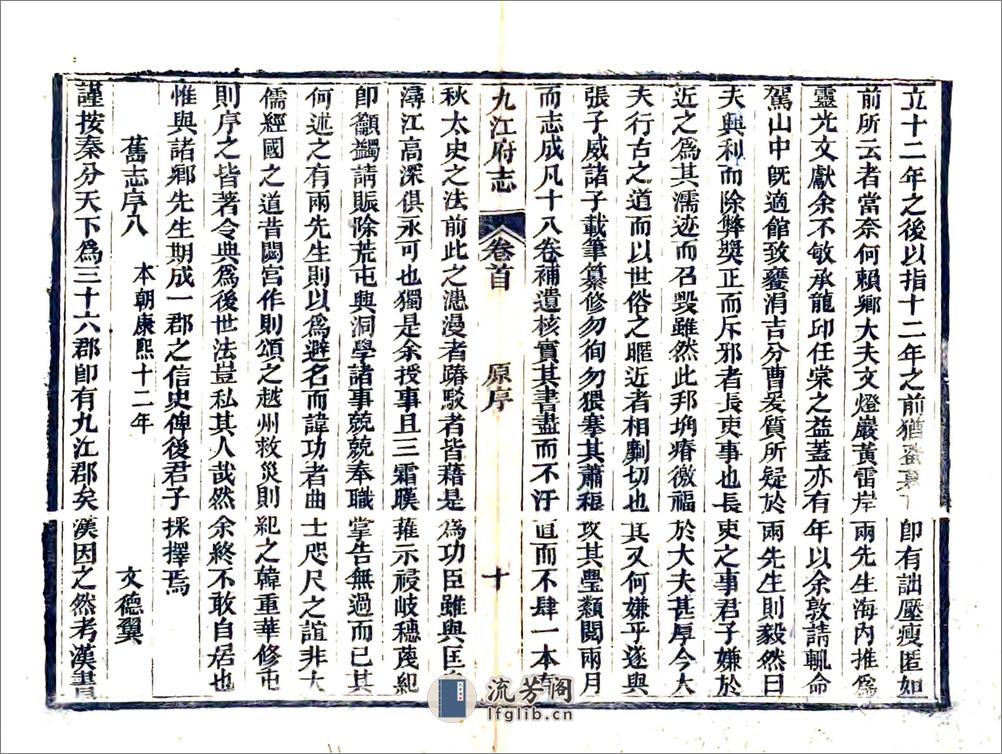 立十二年之後以指十二年之前猶 卽有詘壓瘦匿如
前所云者當奈何賴鄉大夫文燈巖黃雷岸兩先生海内推爲
靈光文獻余不敏承龍卭任棠之益蓋亦有年以余敦請輒命
駕山中旣適館致饔涓吉分曹爰質所疑於兩先生則毅然曰
夫興利而除弊奬正而斥邪者長吏事也長吏之事君子嫌於
近之爲其濡迹而召毀雖然此邦痌瘝徼福於大夫甚厚今大
夫行古之道而以世俗之暱近者相劘切也其又何嫌乎遂與
張子威諸子載筆纂修勿徇勿猥搴其蕭稂攻其璺纇閱兩月
而志成凡十八卷補遺核實其書盡而不汙直而不肆一本春
九江府志 卷首 原序 十
秋太史之法前此之漶漫者踳駁者皆藉是爲功臣雖與匡
潯江高深俱永可也獨是余授事且三霜暵薙示祲岐穗蔑紀
卽籲蠲請賑除荒屯興洞學諸事兢兢奉職掌告無過而已其
何述之有兩先生則以爲避名而諱功者曲士咫尺之誼非大
儒經國之道昔閟宮作則頌之越州救災則紀之韓重華修屯
則序之皆著令典爲後世法豈私其人哉然余終不敢自居也
惟與諸鄉先生期成一郡之信史俾後君子採擇焉
舊志序八 本朝康熙十二年 文德翼
謹按秦分天下爲三十六郡卽有九江郡矣漢因之然考漢書
流芳阁
lfglib.cn